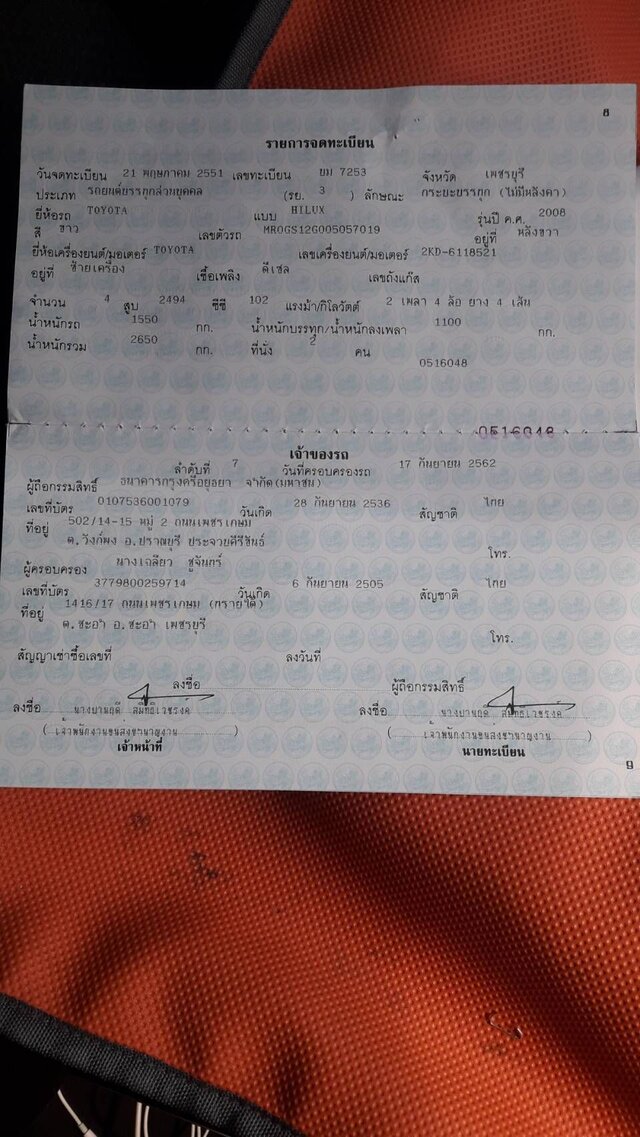 8
รายการจดทะเบียน
วันจดทะเบียน 21 พฤษภาคม 2551 เลขทะเบียน บม 7253 จังหวัด เพชรบุรี
ประเภท รถยนต์บรรทุกส่วนบุคคล (รย. 3 ) ลักษณะ กระบะบรรทุก (ไม่มีหลังคา)
ยี่ห้อรถ TOYOTA แบบ HILUX รุ่นปี ค.ศ. 2008
สี ขาว เลขตัวรถ MR0GS12G005057019 อยู่ที่ หลังขวา
ยี่ห้อเครื่องยนต์/มอเตอร์ TOYOTA เลขเครื่องยนต์/มอเตอร์ 2KD-6118521
อยู่ที่ ซ้ายเครื่อง เชื้อเพลิง ดีเซล เลขถังแก๊ส
จำนวน 4 สูบ 2494 ซีซี 102 แรงม้า/กิโลวัตต์ 2 เพลา 4 ล้อ ยาง 4 เส้น
น้ำหนักรถ 1550 กก. น้ำหนักบรรทุก/น้ำหนักลงเพลา 1100 กก.
น้ำหนักรวม 2650 กก. ที่นั่ง 2 คน
0516048
0516048
เจ้าของรถ
ลำดับที่ 7 วันที่ครอบครองรถ 17 กันยายน 2562
ผู้ถือกรรมสิทธิ์ ธนาคารกรุงศรีอยุธยา จำกัด(มหาชน)
เลขที่บัตร 0107536001079 วันเกิด 28 กันยายน 2536 สัญชาติ ไทย
ที่อยู่ 502/14-15 หมู่ 2 ถนนเพชรเกษม
ต.วังก์พง อ.ปราณบุรี ประจวบคีรีขันธ์
โทร.
ผู้ครอบครอง นางเฉลียว ชูจันทร์
เลขที่บัตร 3779800259714 วันเกิด 6 กันยายน 2505 สัญชาติ ไทย
ที่อยู่ 1416/17 ถนนเพชรเกษม (ทรายใต้)
ต.ชะอำ อ.ชะอำ เพชรบุรี
โทร.
สัญญาเช่าซื้อเลขที่ ลงวันที่
ลงชื่อ ผู้ถือกรรมสิทธิ์
ลงชื่อ ลงชื่อ
(เจ้าพนักงานขนส่งชำนาญงาน ) ( เจ้าพนักงานขนส่งชำนาญงาน )
เจ้าหน้าที่ นายทะเบียน
9